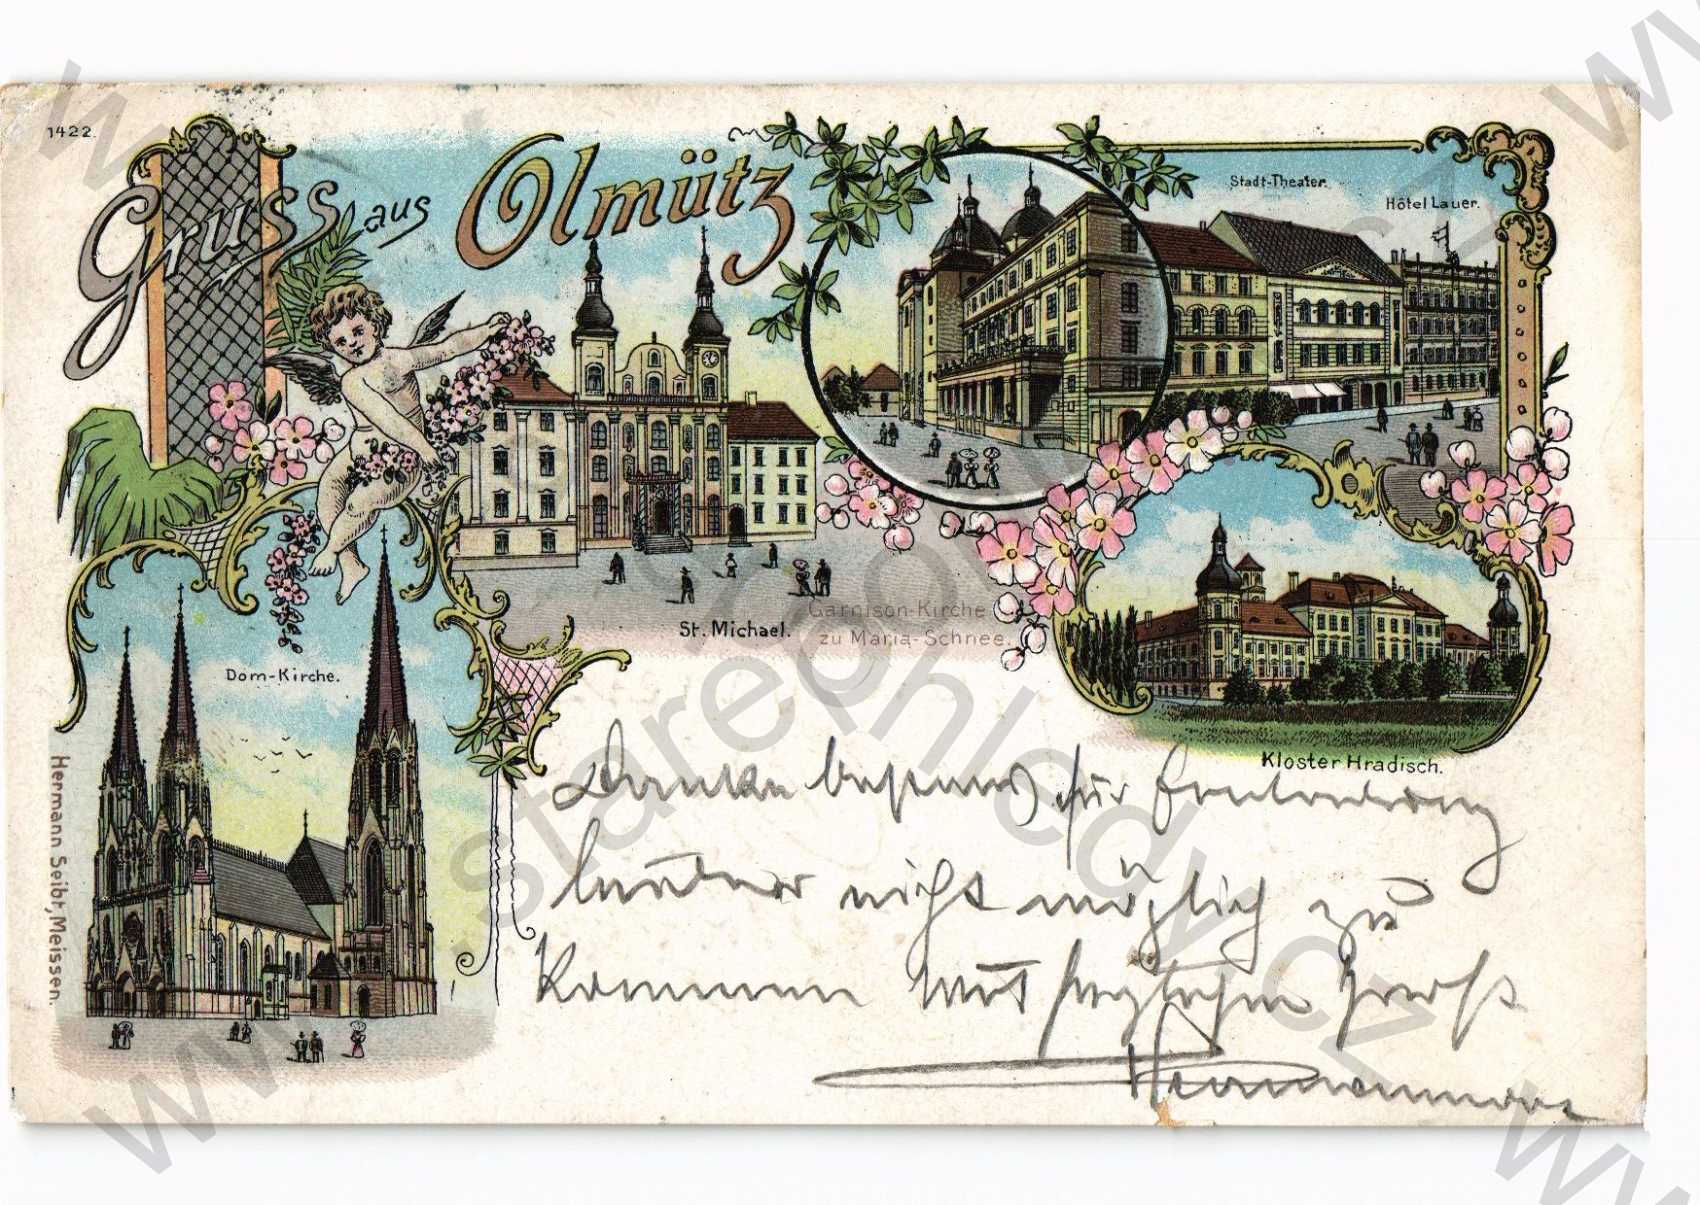 1422.
Gruss aus Olmütz
Stadt-Theater.
Hôtel Lauer.
St. Michael.
Garnison-Kirche
zu Maria-Schnee.
Dom-Kirche.
Kloster Hradisch.
Hermann Seibt, Meissen.
Danke bestens für Einladung
leider nicht möglich zu
kommen Mit herzlichem Gruß
www.starepohledy.cz